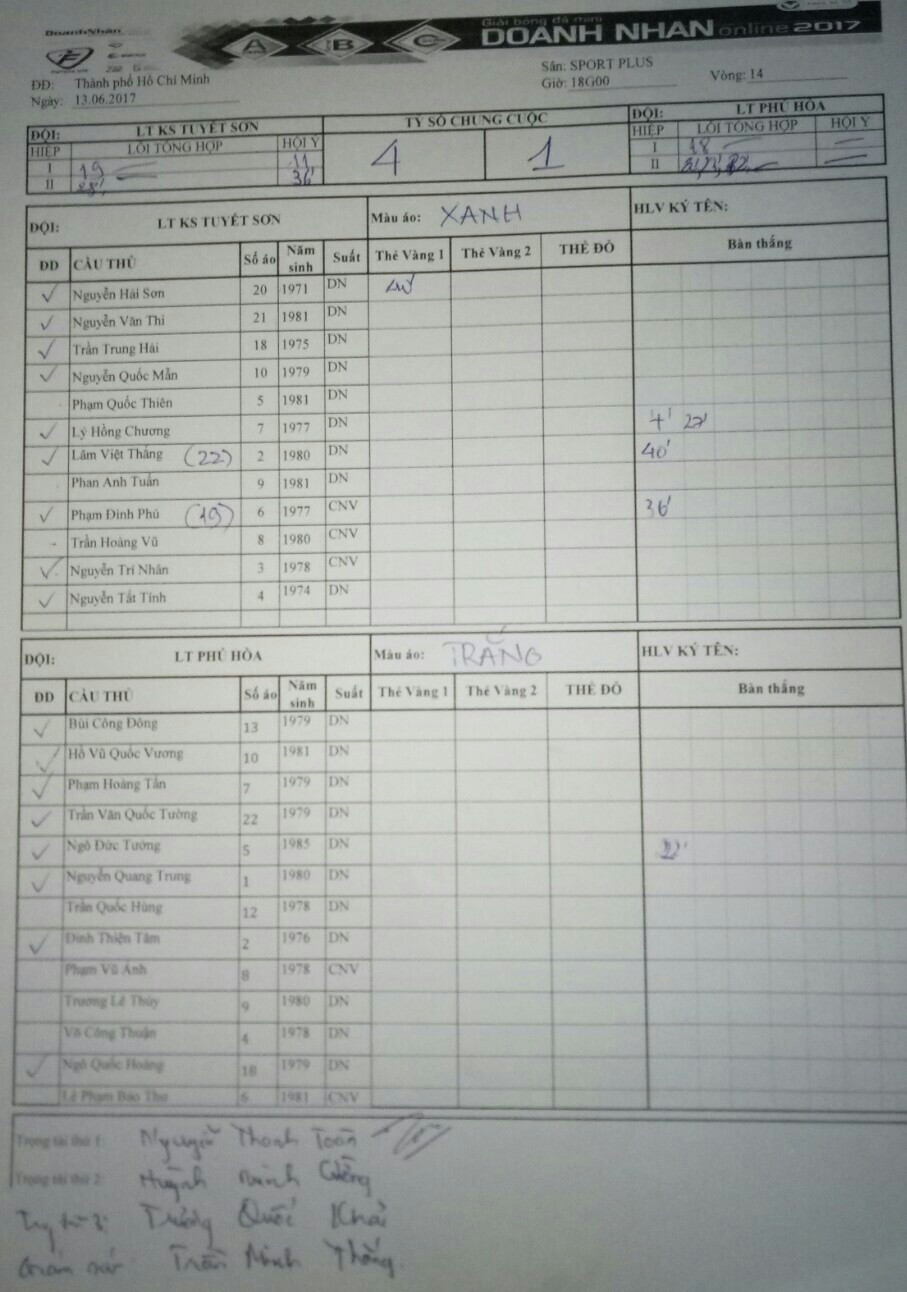 DoanhNhân
A B C
Giải bóng đá mini
DOANH NHAN online 2017
ĐĐ: Thành phố Hồ Chí Minh
Sân: SPORT PLUS
Ngày: 13.06.2017
Giờ: 18G00
Vòng: 14
ĐỘI: LT KS TUYẾT SƠN TỶ SỐ CHUNG CUỘC ĐỘI: LT PHÚ HÒA
HIỆP LỖI TỔNG HỢP HỘI Ý 4 1 HIỆP LỖI TỔNG HỢP HỘI Ý
I 19 11 I 18
II 28' 36' II
ĐỘI: LT KS TUYẾT SƠN Màu áo: XANH HLV KÝ TÊN:
ĐD CẦU THỦ Số áo Năm sinh Suất Thẻ Vàng 1 Thẻ Vàng 2 THẺ ĐỎ Bàn thắng
Nguyễn Hải Sơn 20 1971 DN
Nguyễn Văn Thi 21 1981 DN
Trần Trung Hải 18 1975 DN
Nguyễn Quốc Mẫn 10 1979 DN
Phạm Quốc Thiên 5 1981 DN
Lý Hồng Chương 7 1977 DN 4' 27'
Lâm Việt Thắng (22) 2 1980 DN 40'
Phan Anh Tuấn 9 1981 DN
Phạm Đình Phú (19) 6 1977 CNV 36'
Trần Hoàng Vũ 8 1980 CNV
Nguyễn Trí Nhân 3 1978 CNV
Nguyễn Tất Tính 4 1974 DN
ĐỘI: LT PHÚ HÒA Màu áo: TRẮNG HLV KÝ TÊN:
ĐD CẦU THỦ Số áo Năm sinh Suất Thẻ Vàng 1 Thẻ Vàng 2 THẺ ĐỎ Bàn thắng
Bùi Công Đông 13 1979 DN
Hồ Vũ Quốc Vương 10 1981 DN
Phạm Hoàng Tấn 7 1979 DN
Trần Văn Quốc Tường 22 1979 DN
Ngô Đức Tường 5 1985 DN
Nguyễn Quang Trung 1 1980 DN
Trần Quốc Hùng 12 1978 DN
Đinh Thiện Tâm 2 1976 DN
Phạm Vũ Anh 8 1978 CNV
Trương Lê Thủy 9 1980 DN
Võ Công Thuận 4 1978 DN
Ngô Quốc Hoàng 18 1979 DN
Lê Phạm Bảo Thu 6 1981 CNV
Trọng tài thứ 1: Nguyễn Thanh Toàn
Trọng tài thứ 2: Huỳnh Minh Cường
Trọng tài 3: Trương Quốc Khải
Giám sát: Trần Minh Thắng.